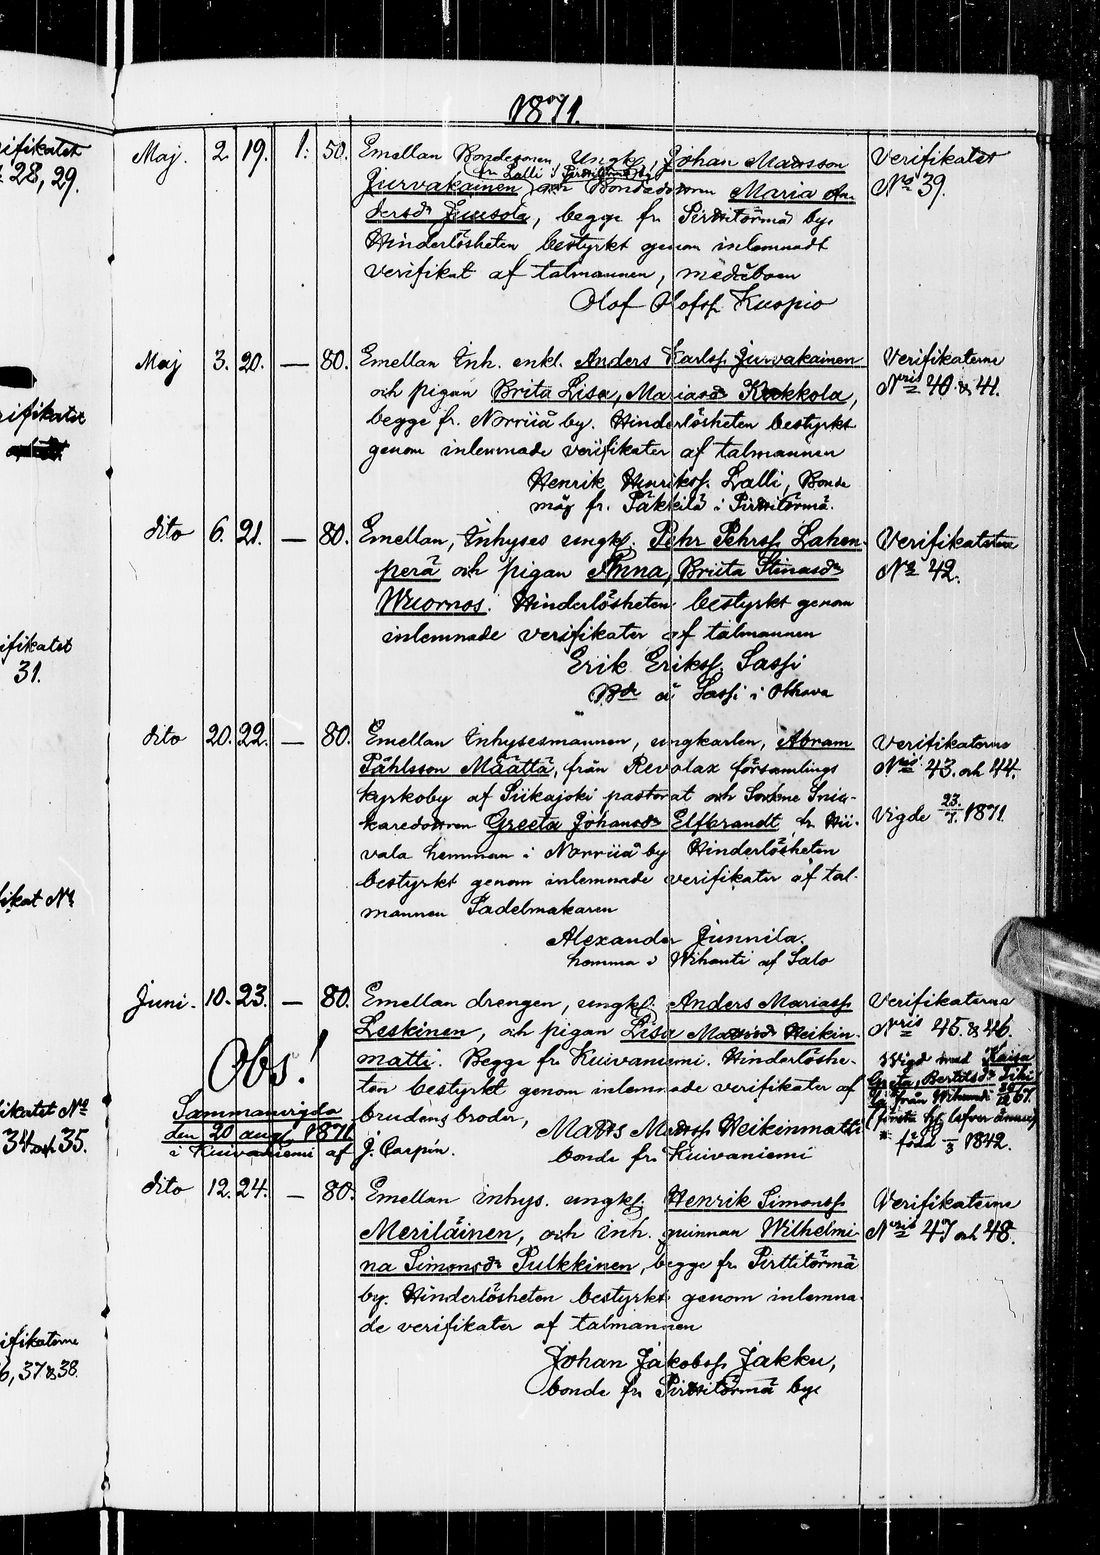 1871.
ifikatet
28, 29.
rifikatet
ifikatet
31.
fikat No
ifikatet No
34 och 35.
ifikaterne
6, 37 & 38.
Maj. 2. 19. 1: 50. Emellan Bondesonen, Ungk., Johan Matsson
fr. Lalli i Pirttitörmä
Jurvakainen och Bondedottren Maria An-
dersdr Juusola, begge fr. Pirttitörmä by.
Hinderlösheten bestyrkt genom inlemnadt
verifikat af talmannen, medåboen
Olof Olofss. Kuspio
Verifikatet
No 39.
Maj 3. 20. — 80. Emellan Inh. enkl. Anders Karlss. Jurvakainen
och pigan Brita Lisa, Mariasdr Kakkola,
begge fr. Norriiå by. Hinderlösheten bestyrkt
genom inlemnade verifikater af talmannen
Henrik Henrikss. Lalli, Bonde
måg fr. Pakkila i Pirttitörmä.
Verifikaterne
Nris 40 & 41.
dito 6. 21. — 80. Emellan, Inhyses ungk. Pehr Pehrss. Lahen-
perä och pigan Anna Briita Stinasdr
Wuornos. Hinderlösheten bestyrkt genom
inlemnade verifikater af talmannen
Erik Erikss. Sassi
Bde å Sassi i Olhava
No 42.
dito 20. 22. — 80. Emellan Inhysesmannen, ungkarlen, Abram
Påhlsson Määttä, från Revolax församlings
kyrkoby af Siikajoki pastorat och Snic-
karedottren Greeta Johansdr Elfbrandt fr. Hii-
vala hemman i Norriiå by Hinderlösheten
bestyrkt genom inlemnade verifikater af tal-
mannen Sadelmakaren
Alexander Junnila.
hemma i Wihanti af Salo
Verifikaterne
Nris 43. och 44.
Vigde 23./7. 1871.
Juni. 10. 23. — 80. Emellan drengen, ungk. Anders Mariass.
Leskinen, och pigan Lisa Mattsdr Heikin-
matti. Begge fr. Kuivaniemi. Hinderlöshe-
ten bestyrkt genom inlemnade verifikater af
brudens broder,
Matts Mattss. Heikinmatti
bonde fr. Kuivaniemi
Obs!
Sammanvigda
den 20 aug. 1871
i Kuivaniemi af J. Caspén.
Verifikaterne
Nris 45. & 46.
Vigd med Kaisa
Greta, Bertilsdr
från
född /3 1842.
dito 12. 24. — 80. Emellan inhys. ungk. Henrik Simonss.
Meriläinen, och inh. qvinnan Wilhelmi-
na Simonsdr Pulkkinen, begge fr. Pirttitörmä
by. Hinderlösheten bestyrkt genom inlemna-
de verifikater af talmannen
Johan Jakobss. Jakku,
bonde fr. Pirttitörmä by.
Verifikaterne
Nris 47 och 48.